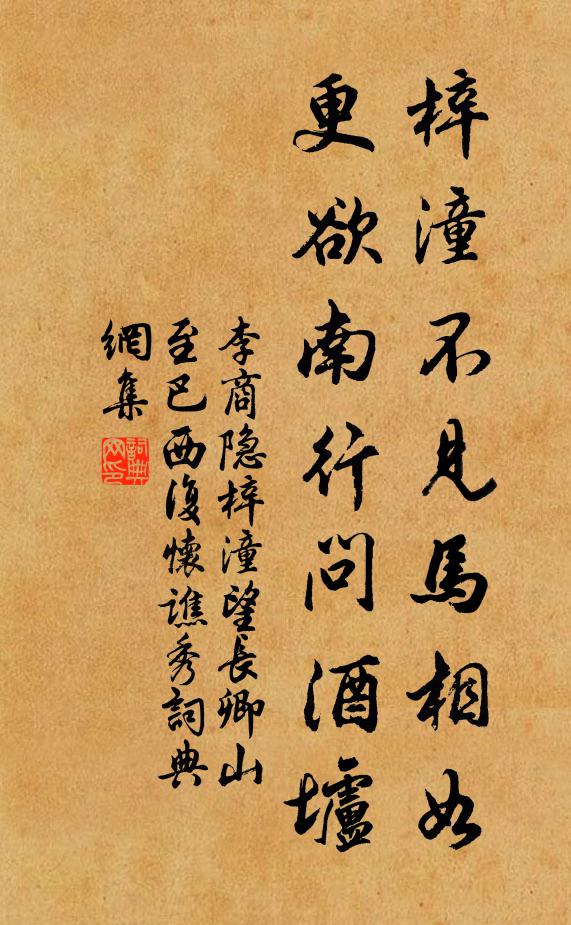 梓潼不見馬相如
更欲南行問酒壚
李商隐梓潼望長卿山
至巴西復懷譙秀詞典
網集
詞典
网印